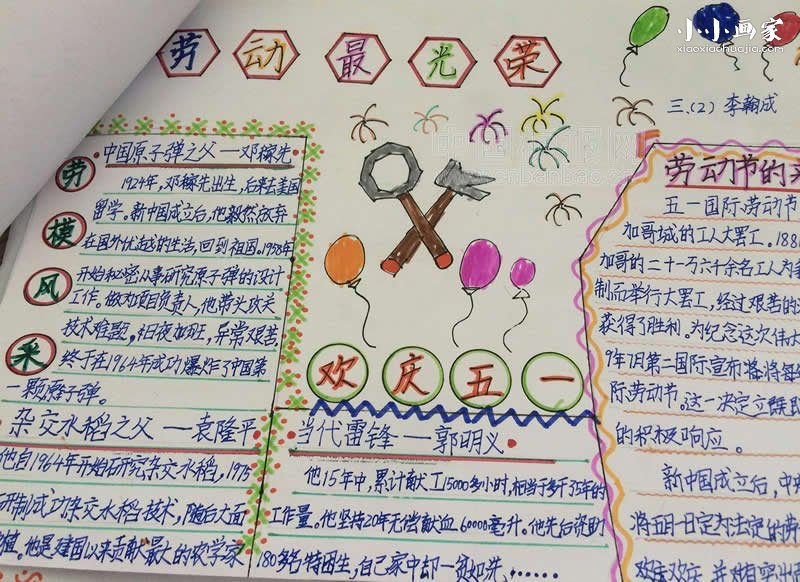 劳动最光荣
小小画家
xiaoxiaohuajia.com
三.(2) 李翰成
劳模风采
中国原子弹之父—邓稼先
1924年,邓稼先出生,后来去美国
留学。新中国成立后,他毅然放弃
在国外优越的生活,回到祖国。1958年
开始秘密从事研究原子弹的设计
工作。做为项目负责人,他带头攻关
技术难题,日夜加班,异常艰苦,
终于在1964年成功爆炸了中国第
一颗原子弹。
杂交水稻之父—袁隆平
他自1964年开始研究杂交水稻,1975
研制成功杂交水稻技术,随后大面
值。他是建国以来贡献最大的农学家
欢庆五一
当代雷锋—郭明义
他15年中,累计献工15000多小时,相当于多干35年的
工作量。他坚持20年无偿献血60000毫升。他先后资助
180多名特困生,自己家中却一贫如洗,……
劳动节的
五一国际劳动节
加哥城的工人大罢工。188
加哥的二十一万六千余名工人为
制而举行大罢工,经过艰苦的
获得了胜利。为纪念这次伟大
9年7月第二国际宣布将将每
际劳动节。这一决定立即
的积极响应。
新中国成立后,中
将五月一日定为法定的劳
欢庆